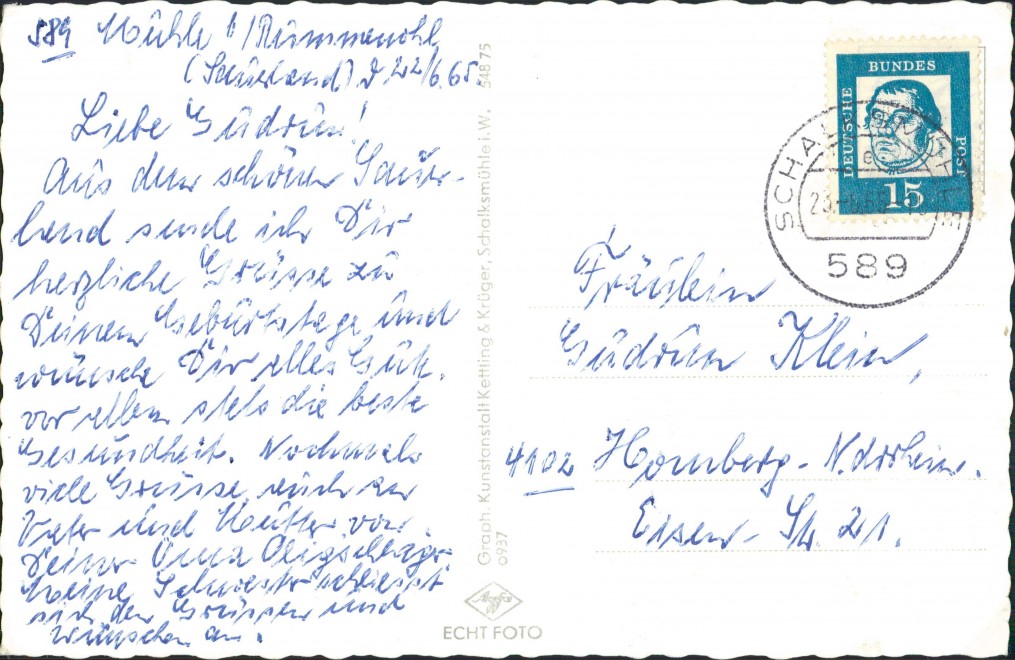 589 Mühle b/Rummenohl
(Sauerland) d 22/6.65.
Liebe Gudrun!
Aus dem schönen Sauer-
land sende ich Dir
herzliche Grüsse zu
Deinem Geburtstage und
wünsche Dir alles Gute.
vor allem stets die beste
Gesundheit. Nochmals
viele Grüsse auch an
Vater und Mutter von
Deiner Oma
Meine Schwester schliesst
sich den Grüssen und
Wünschen an.
Graph. Kunstanstalt Ketting & Krüger, Schalksmühle i.W. 548 75
0937
Agfa
ECHT FOTO
DEUTSCHE
BUNDES
POST
15
589
Fräulein
Gudrun Klein,
4102 Homberg-Ndrrhein.
Eisen-Str. 21.